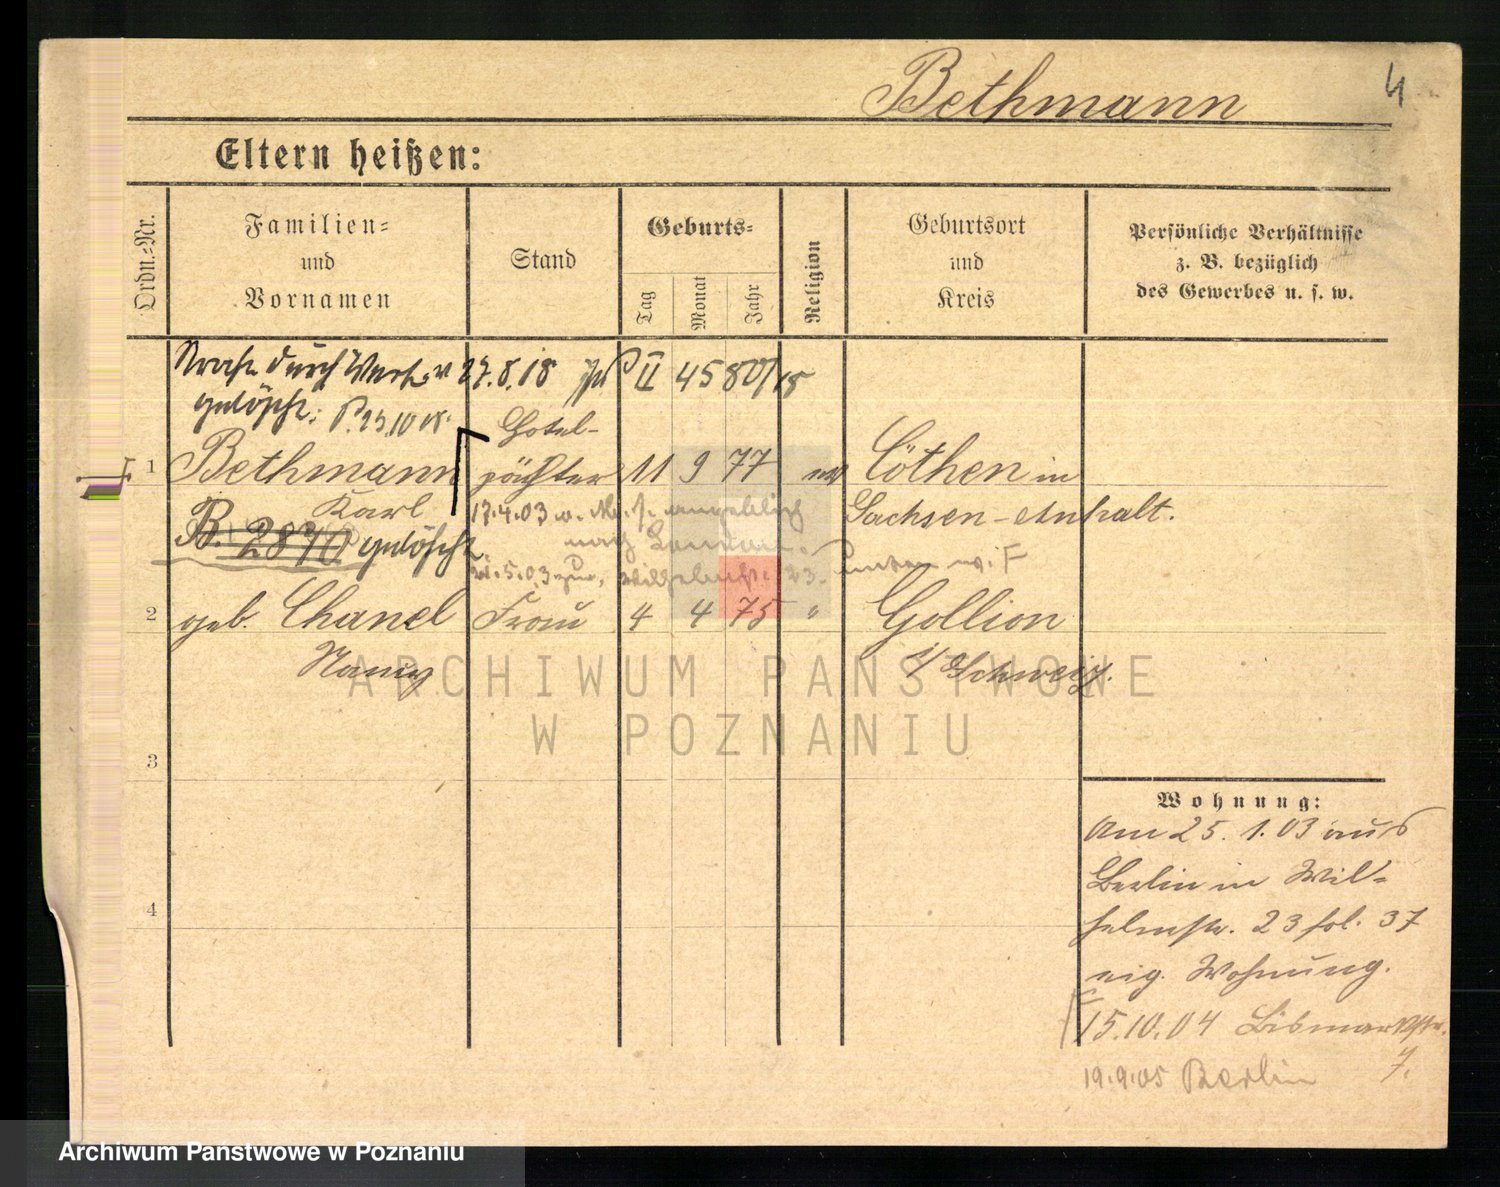 Bethmann
4
Eltern heißen:
Ordn.-Nr.
Familien-
und
Vornamen
Stand
Geburts-
Tag
Monat
Jahr
Religion
Geburtsort
und
Kreis
Persönliche Verhältnisse
z. B. bezüglich
des Gewerbes u. s. w.
durch 27.8.18 II 4580/18
gelöscht: P. 23.10
1 Bethmann Hotel-
pächter 11 9 77 ev Cöthen in
Karl
Sachsen-Anhalt.
17.4.03 angeblich
nach
B. 2870 gelöscht
5.03 zur. Wilhelmstr. 23.
2 geb. Chanel Frau 4 4 75 " Gollion
Nanny
i/Schweiz.
3
4
Wohnung:
Am 25.1.03 aus
Berlin in Wil-
helmstr. 23 fol. 37
eig. Wohnung.
15.10.04 Bismarckstr.
7.
19.9.05 Berlin
ARCHIWUM PAŃSTWOWE
W POZNANIU
Archiwum Państwowe w Poznaniu